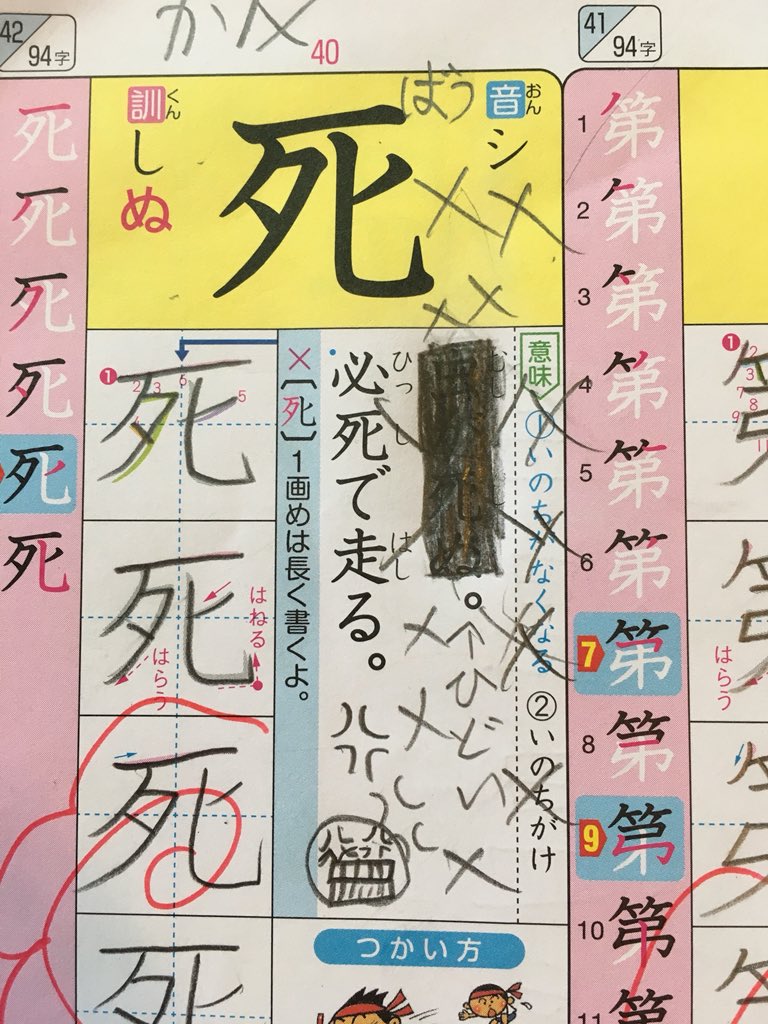 42
94字
かん
40
41
94字
音
おん
シ
訓
くん
し
ぬ
死
ばう
意味
①いのちがなくなる
②いのちがけ
。
↑ひどい
ひっ し はし
必死で走る。
×〔死〕1画めは長く書くよ。
1 2 3 5 6
死
死
はねる
はらう
死
死
死
死
死
死
死
死
つかい方
1 第
2 第
3 第
4 第
5 第
6 第
7 第
8 第
9 第
10 第
11
はらう